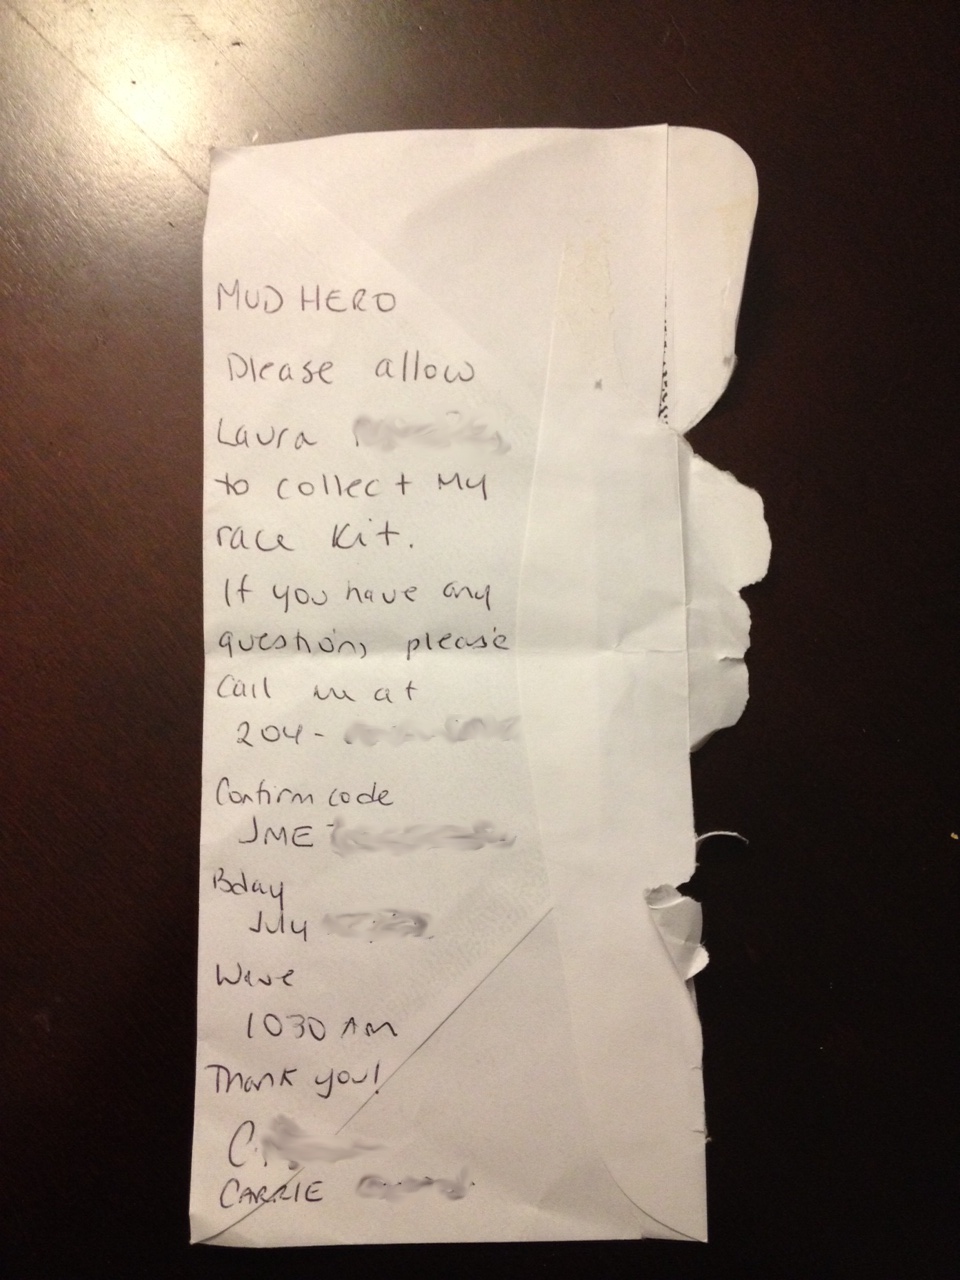 MUD HERO
Please allow
Laura
to collect my
race kit.
If you have any
question, please
Call me at
204-
Confirm code
JME
Bday
July
Wave
1030 AM
Thank you!
CARRIE